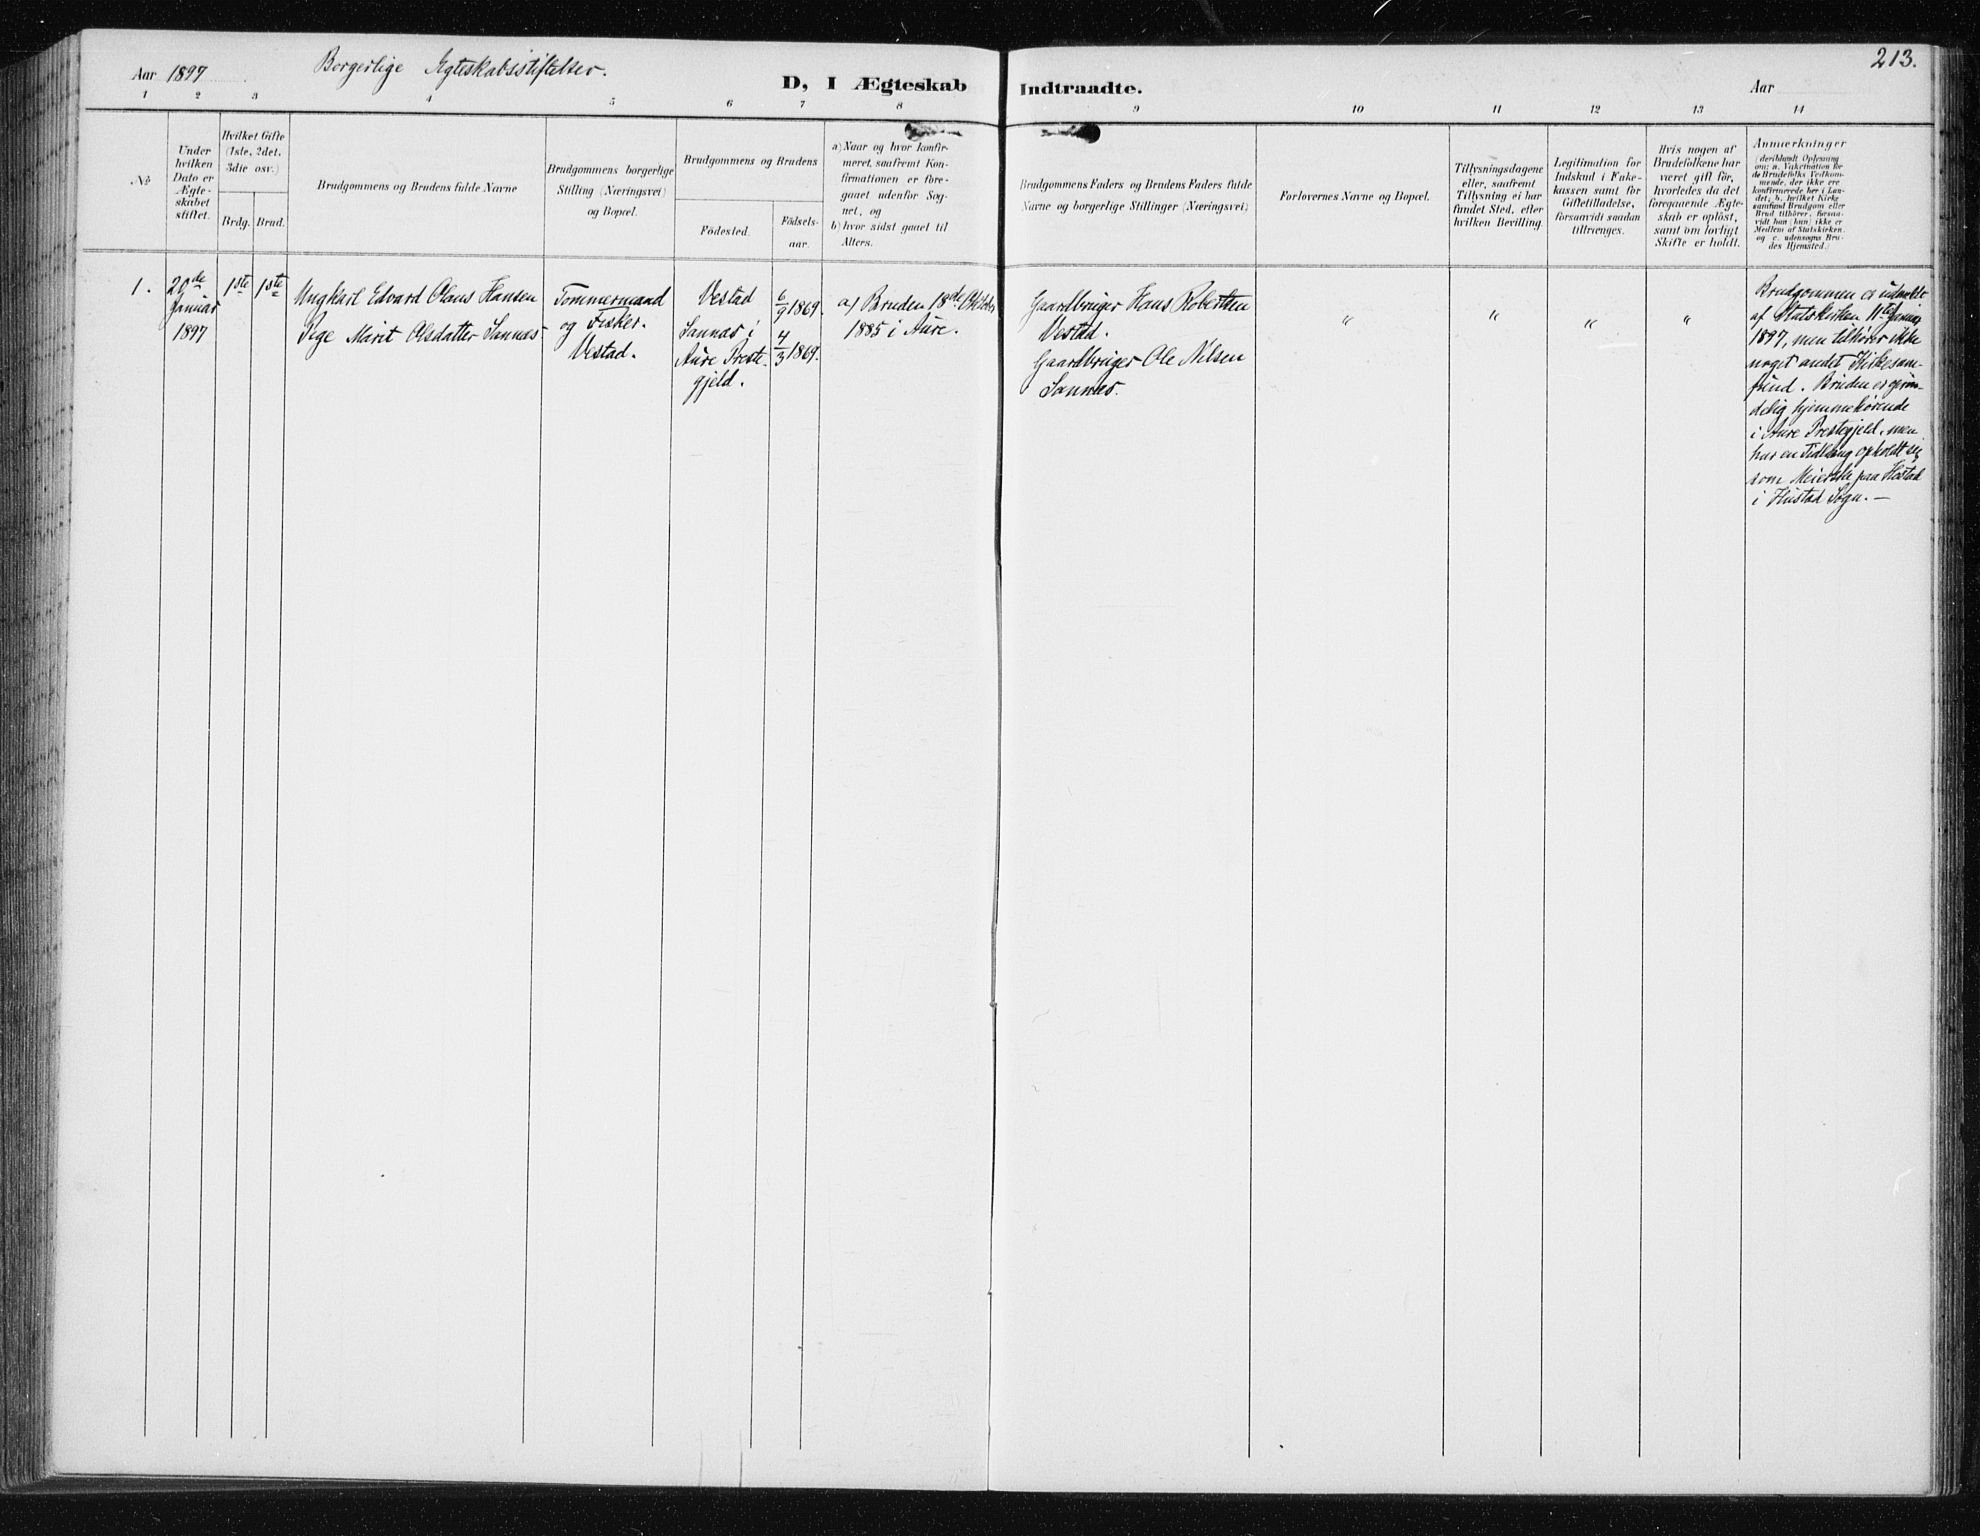 213.
Aar 1897 Borgerlige Ægteskabsstiftelser.
D, I Ægteskab Indtraadte.
Aar
1 2 3 4 5 6 7 8 9 10 11 12 13 14
№
Under
hvilken
Dato er
Ægte-
skabet
stiftet.
Hvilket Gifte
(1ste, 2det,
3die osv.)
Brdg. Brud.
Brudgommens og Brudens fulde Navne
Brudgommens borgerlige
Stilling (Næringsvei)
og Bopæl.
Brudgommens og Brudens
Födested.
Födsels-
aar.
a) Naar og hvor konfir-
meret, saafremt Kon-
firmationen er fore-
gaaet udenfor Sog-
net, og
b) hvor sidst gaaet til
Alters.
Brudgommens Faders og Brudens Faders fulde
Navne og borgerlige Stillinger (Næringsvei)
Forlovernes Navne og Bopæl.
Tillysningsdagene
eller, saafremt
Tillysning ei har
fundet Sted, efter
hvilken Bevilling.
Legitimation for
Indskud i Enke-
kassen samt for
Giftetilladelse,
forsaavidt saadan
tiltrænges.
Hvis nogen af
Brudefolkene har
været gift för,
hvorledes da det
foregaaende Ægte-
skab er oplöst,
samt om lovligt
Skifte er holdt.
Anmærkninger
(deriblandt Oplysning
om: a. Vaksination for
de Brudefolks Vedkom-
mende, der ikke ere
konfirmerede her i Lan-
det; b. hvilket Kirke-
samfund Brudgom eller
Brud tilhører, forsaa-
vidt han (hun) ikke er
Medlem af Statskirken,
og c. udensogns Bru-
des Hjemsted.)
1.
20de
Januar
1897
1ste 1ste
Ungkarl Edvard Olaus Hansen
Pige Marit Olsdatter Sannæs
Tømmermand
og Fisker.
Vestad.
Vestad
Sannæs i
Aure Preste-
gjeld.
6/9 1869.
4/3 1869.
a) Bruden 18de Oktober
1885 i Aure.
Gaardbruger Hans Robertsen
Vestad.
Gaardbruger Ole Nilsen
Sannæs.
" " " "
Brudgommen er udmeldt
af Statskirken 11te Januar
1897, men tilhører ikke
noget andet Kirkesam-
fund. Bruden er oprin-
delig hjemmehørende
i Aure Prestegjeld, men
har en Tidlang opholdt sig
som Meierske paa Hustad
i Hustad Sogn. —